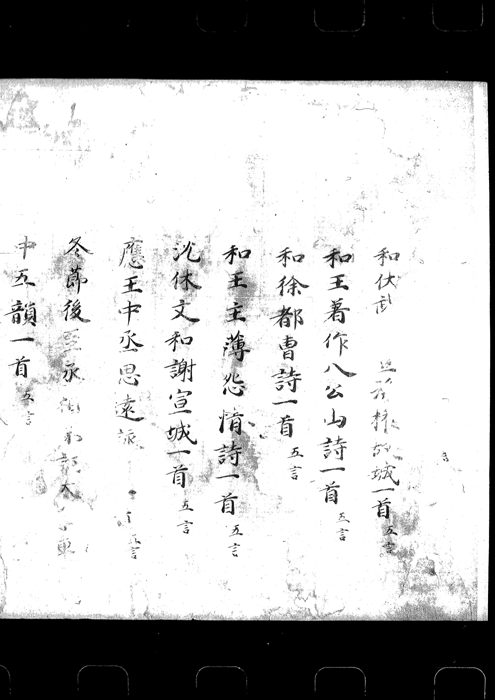 和伏武 登孫權故城一首 五言
和王著作八公山詩一首 五言
和徐都曹詩一首 五言
和王主薄怨情詩一首 五言
沈休文和謝宣城一首 五言
應王中丞思遠詠 五言
冬節後至丞 車
中五韻一首 五言